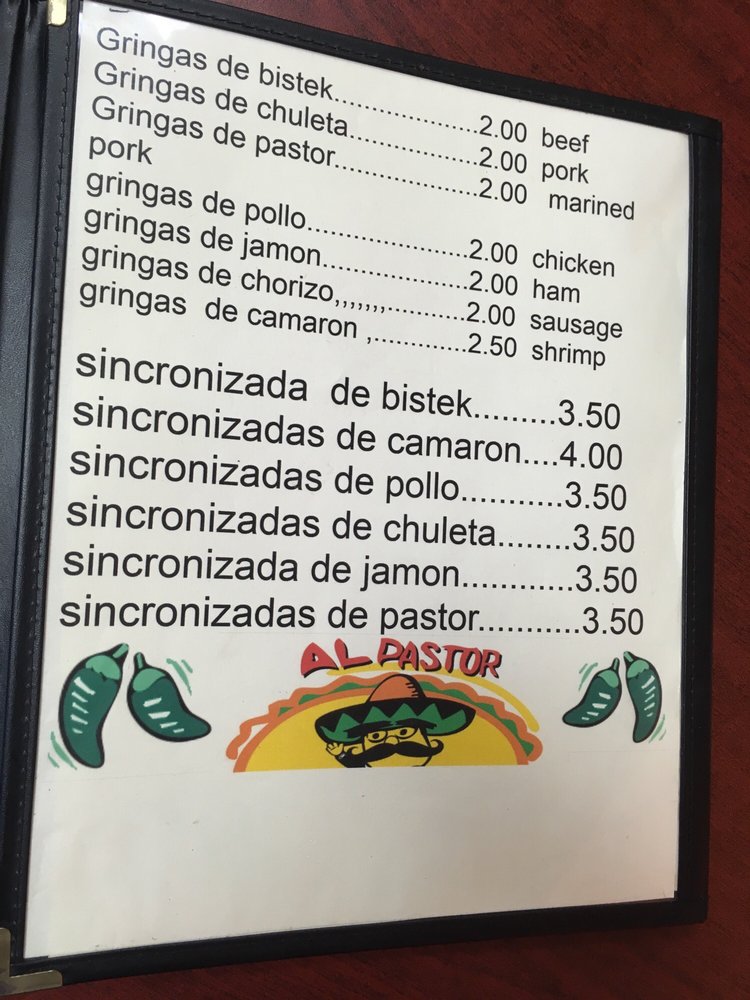 Gringas de bistek.....................2.00 beef
Gringas de chuleta...................2.00 pork
Gringas de pastor.....................2.00 marined
pork
gringas de pollo.......................2.00 chicken
gringas de jamon.....................2.00 ham
gringas de chorizo,,,,,,,...........2.00 sausage
gringas de camaron ,.............2.50 shrimp
sincronizada de bistek.........3.50
sincronizadas de camaron....4.00
sincronizadas de pollo...........3.50
sincronizadas de chuleta........3.50
sincronizada de jamon............3.50
sincronizadas de pastor...........3.50
AL PASTOR